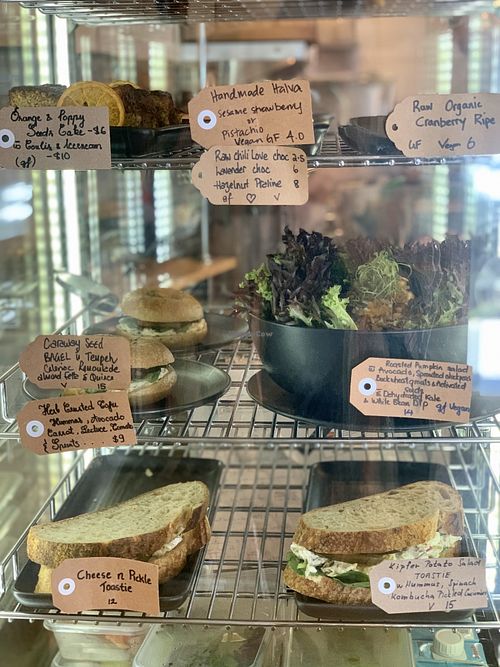 Orange & Poppy
Seeds Cake - $6
& Coulis & Icecream
(gf) - $10
Handmade Halva
Sesame strawberry
or
Pistachio
Vegan GF 4.0
Raw Organic
Cranberry Ripe
GF Vegan 6
Raw Chili Love choc 3.5
Lavender choc 6
Hazelnut Praline 8
gf ♡ V
Caraway Seed
BAGEL w Tempeh
Celeriac Remoulade
almond feta & Quince
V 15
Herb Crusted Tofu
Hummus, Avocado
Carrot, Lettuce, Tomato
& Sprouts $9
Roasted Pumpkin salad
Avocado, Sprouted chickpeas
Buckwheat & Activated
Seeds
& Dehydrated Kale
& White Bean Dip gf Vegan
14
Cheese n Pickle
Toastie
12
Kipfer Potato Salad
TOASTIE
w Hummus, Spinach
Kombucha Pickled Cucumber
V 15